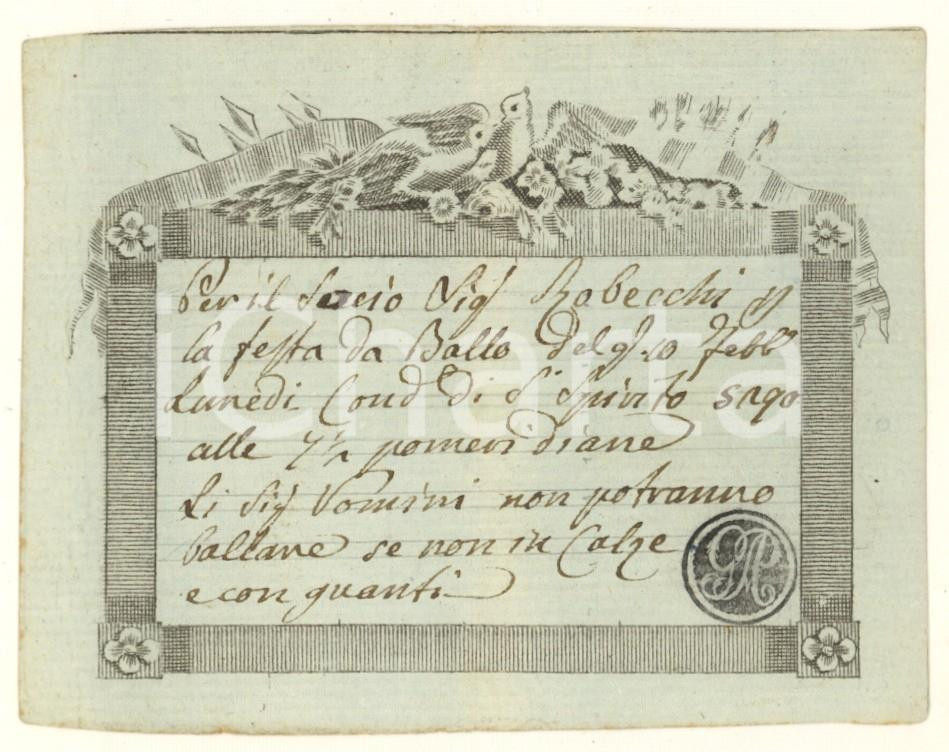 Per il Socio Sig Robecchi p
la festa da Ballo del g. 10 Febb
Lunedi Cond di S Spirito
alle 7½ pomeridiane
Li Sig Uomini non potranno
ballare se non in Calze
e con guanti
iCharta